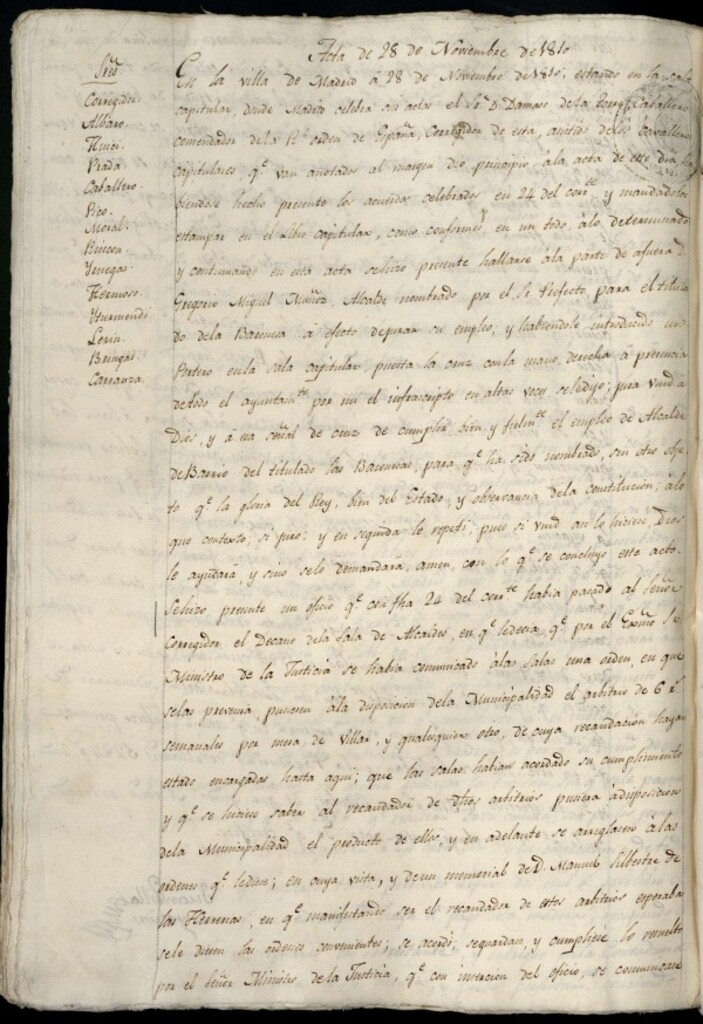 Acta de 28 de Noviembre de 1810
Sres.
Corregidor.
Albaro.
Huici.
Prada.
Caballero.
Pico.
Moral.
Rincon.
Venegas.
Hermoso.
Yturmendi
Leon.
Bringas.
Carranza.
En la villa de Madrid á 28 de Noviembre de 1810; estando en la sala
capitular, donde Madrid celebra sus actos el Sr. D. Damaso de la Torre, Caballero
comendador de la Rl. orden de España, Corregidor de esta, asistido de los Cavalleros
capitulares, qe. van anotados al margen dio principio á la acta de este dia, ha
biendose hecho presente los acuerdos celebrados en 24 del corrte. y mandadolos
estampar en el Libro capitular, como conformes en un todo álo determinado
y continuando en esta acta se hizo presente hallarse ála parte de afuera D.
Gregorio Miguel Muñoz Alcalde nombrado por el Sr. Prefecto para el titula
do de la Baronesa á efecto de jurar su empleo; y habiendole introducido un
Portero en la sala capitular, puesta la cruz con la mano derecha á presencia
de todo el ayuntamto. por mi el infrascripto en altas voces se le dijo; jura vmd á
Dios, y á esa señal de cruz de cumplir bien y fielmte. el empleo de Alcalde
de Barrio del titulado las Baronesas, para qe. ha sido nombrado, sin otro obje
to qe. la gloria del Rey, bien del Estado, y observancia de la constitucion; álo
que contexto; si juro; y en seguida le repeti; pues si vmd asi lo hiciere, Dios
le ayudará, y sino se lo demandará, amen, con lo qe. se concluyo este acto.
Se hizo presente un oficio qe. con fha 24 del corrte. habia pasado al Señor
Corregidor el Decano de la Sala de Alcaldes, en qe. le decia, qe. por el Exmo. Sr.
Ministro de la Justicia se habia comunicado álas Salas una orden, en que
se las prevenia, pusieren ála disposicion de la Municipalidad el arbitrio de 6 rs.
semanales por mesa de Villar, y qualesquier otro, de cuya recaudación hayan
estado encargadas hasta aqui; que las salas habian acordado su cumplimiento
y qe. se hiciere saber al recaudador de dhos arbitrios pusiera á disposicion
de la Municipalidad el producto de ellos, y en adelante se arreglasen á las
ordenes qe. le diere; en cuya vista, y de un memorial de D. Manuel Silbestre de
las Herrerias, en qe. manifestando ser el recaudador de estos arbitrios esperaba
se le diesen las ordenes convenientes; se acordó, se guardase, y cumpliese lo resuelto
por el Señor Ministro de la Justicia, qe. con insercion del oficio, se comunicase